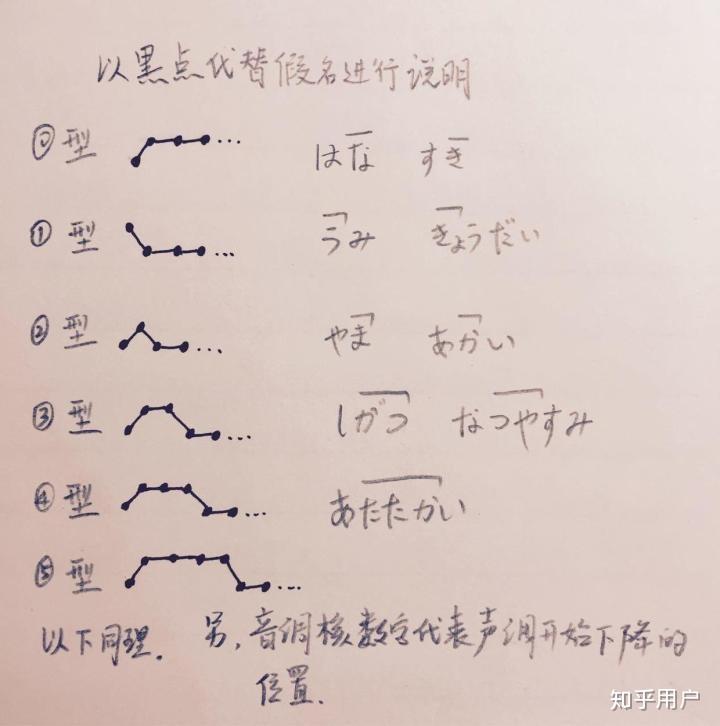 以黑点代替假名进行说明
⓪型 ... はな すき
①型 ... うみ きょうだい
②型 ... やま あかい
③型 ... しがつ なつやすみ
④型 ... あたたかい
⑤型 ...
以下同理. 另,音调核数字代表声调开始下降的
位置.
知乎用户